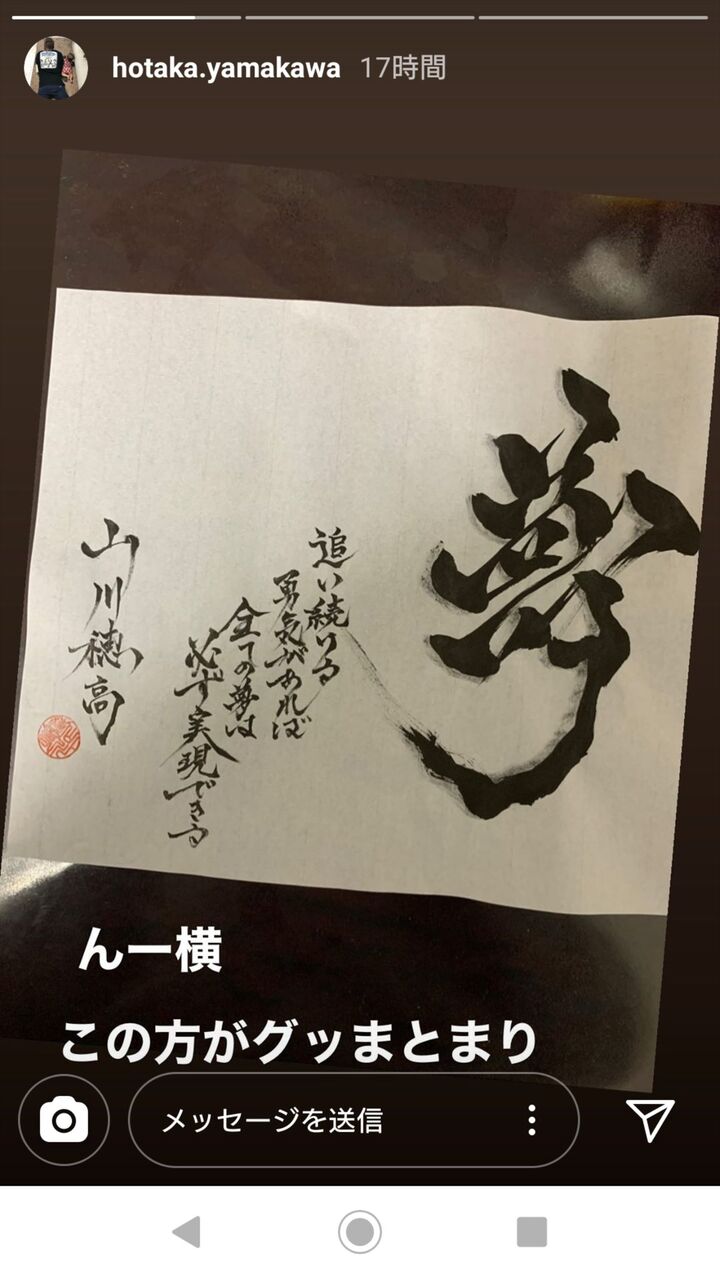 hotaka.yamakawa 17時間
夢
追い続ける
勇気があれば
全ての夢は
必ず実現できる
山川穂高
んー横
この方がグッまとまり
メッセージを送信